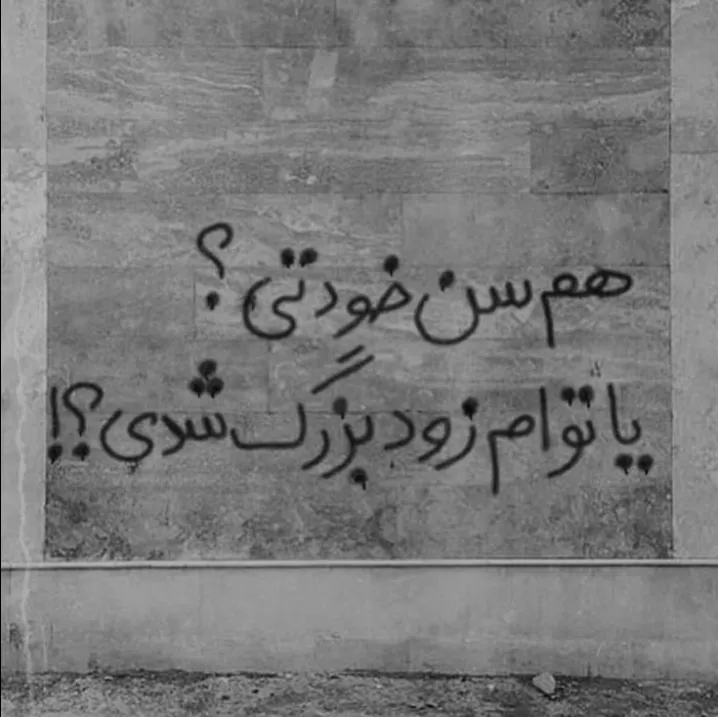 هم سن خودتی؟
یا توام زود بزرگ شدی؟!